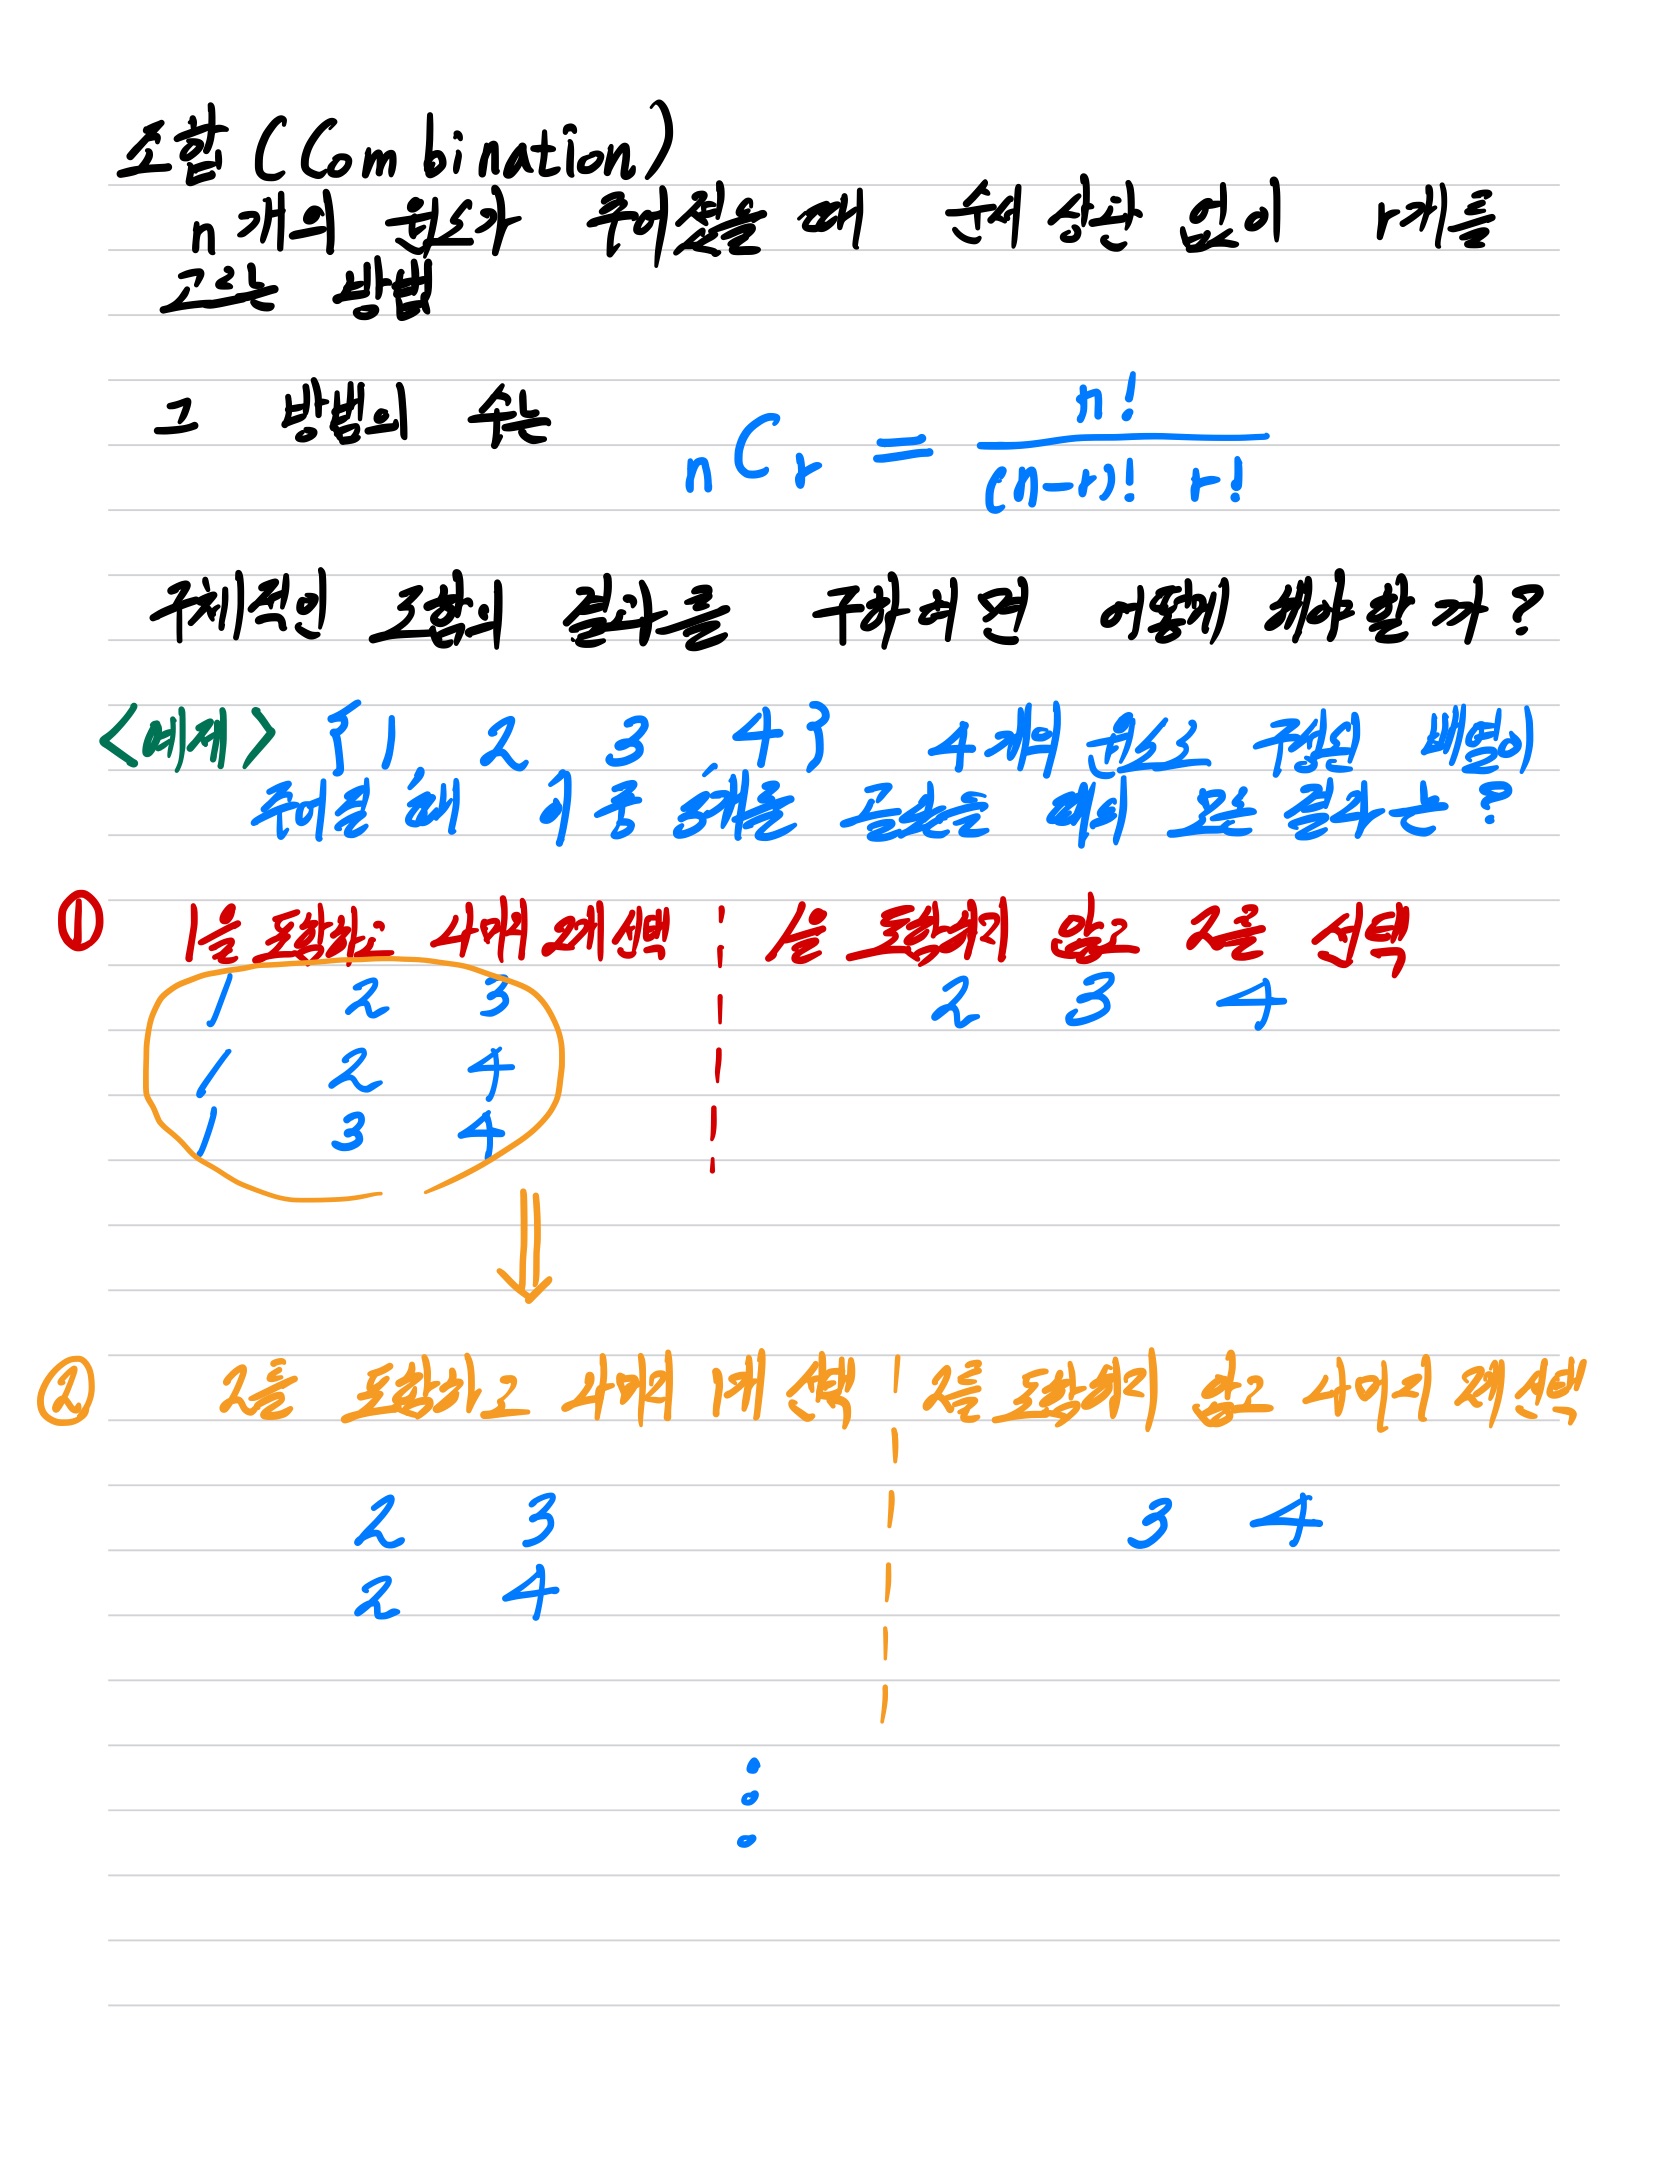 조합 (Combination)
n개의 원소가 주어졌을 때 순서 상관 없이 r개를
고르는 방법
그 방법의 수는 nCr = n! / (n-r)! r!
구체적인 조합의 결과를 구하려면 어떻게 해야 할까?
<예제> {1, 2, 3, 4} 4개의 원소로 구성된 배열이
주어질 때 이 중 3개를 골랐을 때의 모든 결과는?
① 1을 포함하고 나머지 2개 선택 1을 포함하지 않고 2를 선택
1 2 3 2 3 4
1 2 4
1 3 4
② 2를 포함하고 나머지 1개 선택 2를 포함하지 않고 나머지 2개 선택
2 3 3 4
2 4